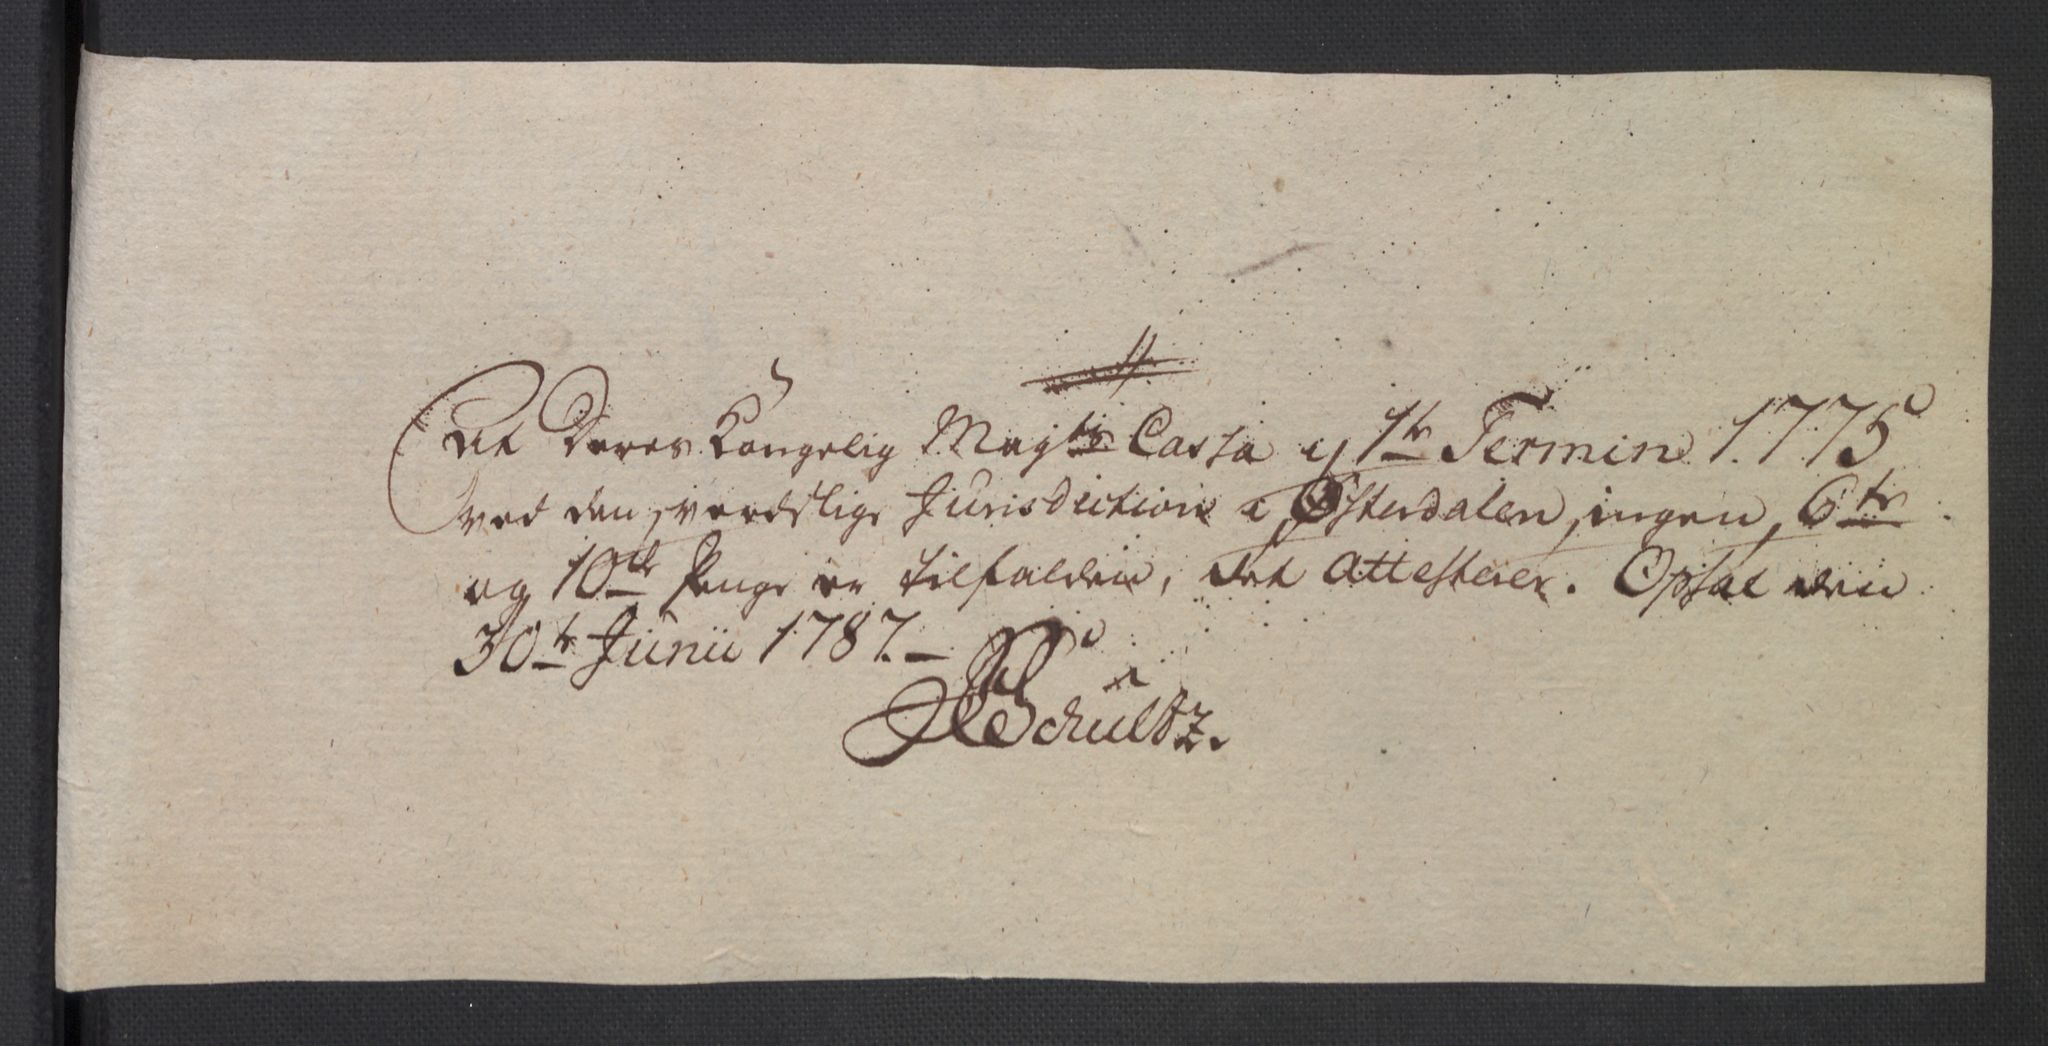 At Deres Kongelig Mayts Cassa i 1te Termin 1775
ved den verdslige Jurisdiction i Østerdalen, ingen 6te
og 10de Penge er tilfalden, det attesterer. Opsal den
30te Junii 1787.
Schultz.